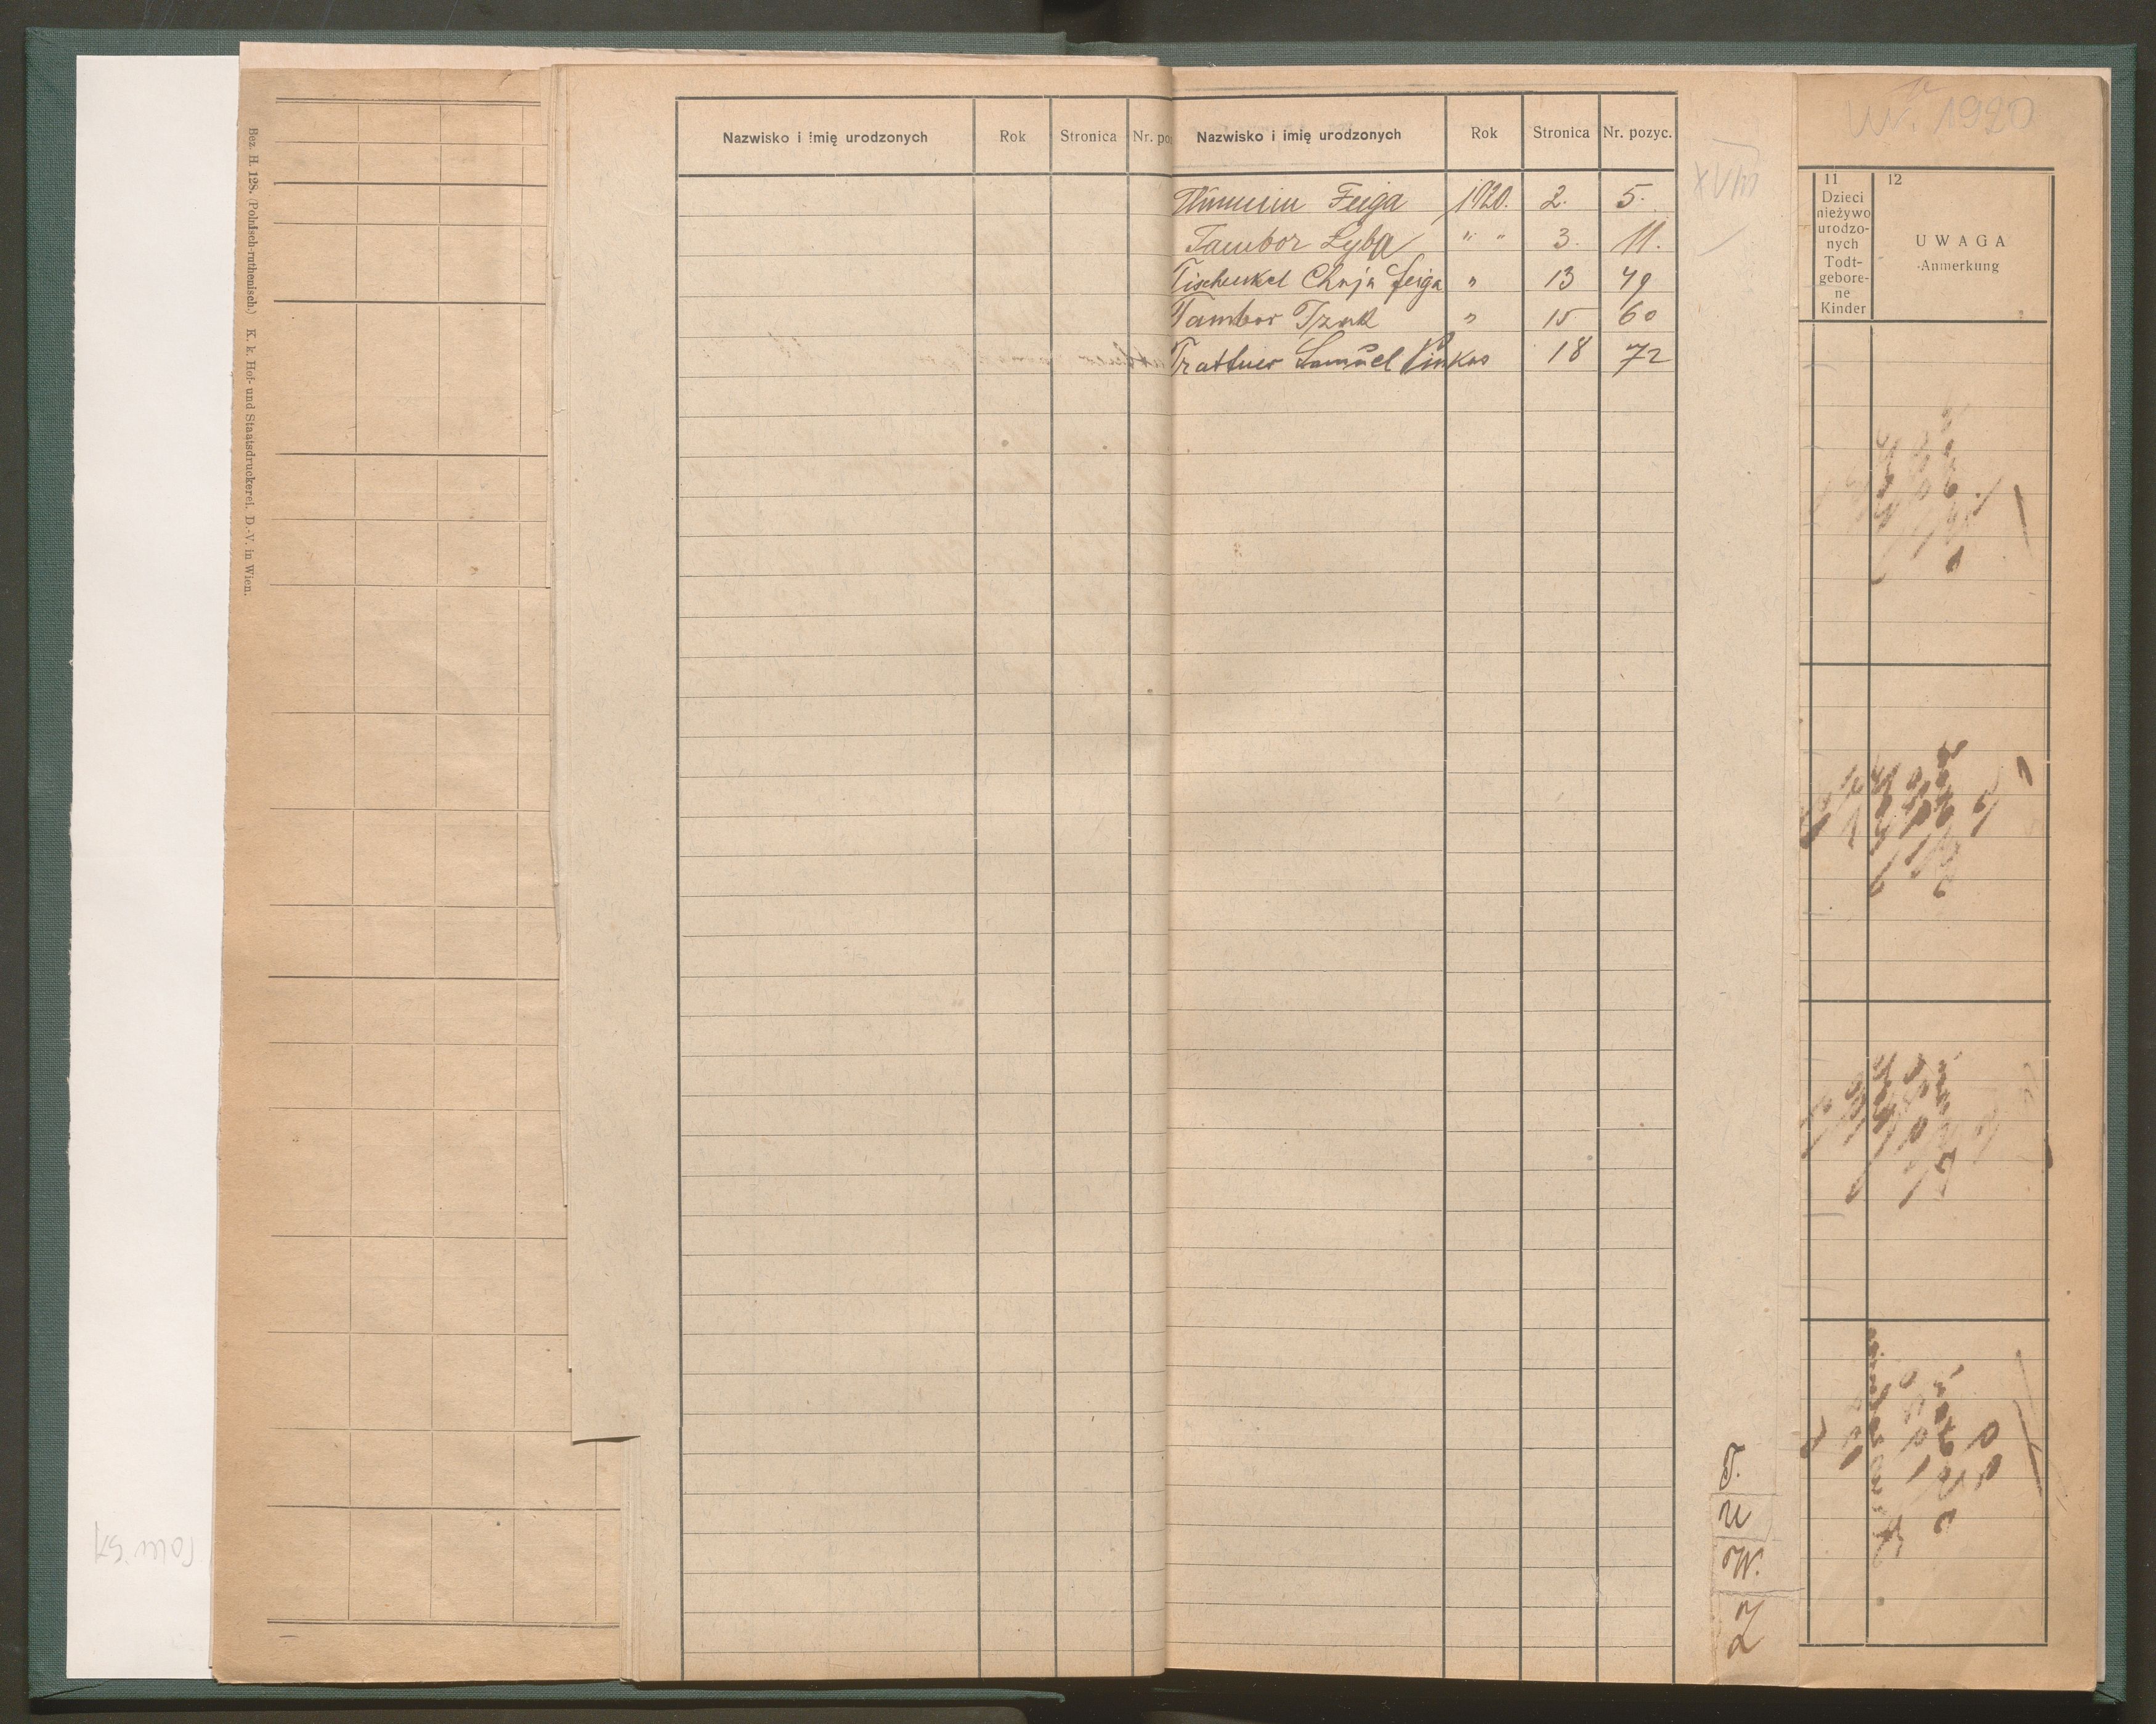 Bez. H. 128. (Polnisch-ruthenisch.) K. k. Hof- und Staatsdruckerei. D.-V. in Wien.
Nazwisko i imię urodzonych Rok Stronica Nr. po
Nazwisko i imię urodzonych Rok Stronica Nr. pozyc.
Feiga 1920. 2. 5.
Tambor Zyba " " 3. 11.
Tischenkel Chaja Feiga " 13 49
Tambor " 15 60
Trattner Samuel Pinkas 18 72
XVIII
T.
U
W.
Z
Ur. 1920
11
Dzieci
nieżywo
urodzo-
nych
Todt-
gebore-
ne
Kinder
12
UWAGA
Anmerkung